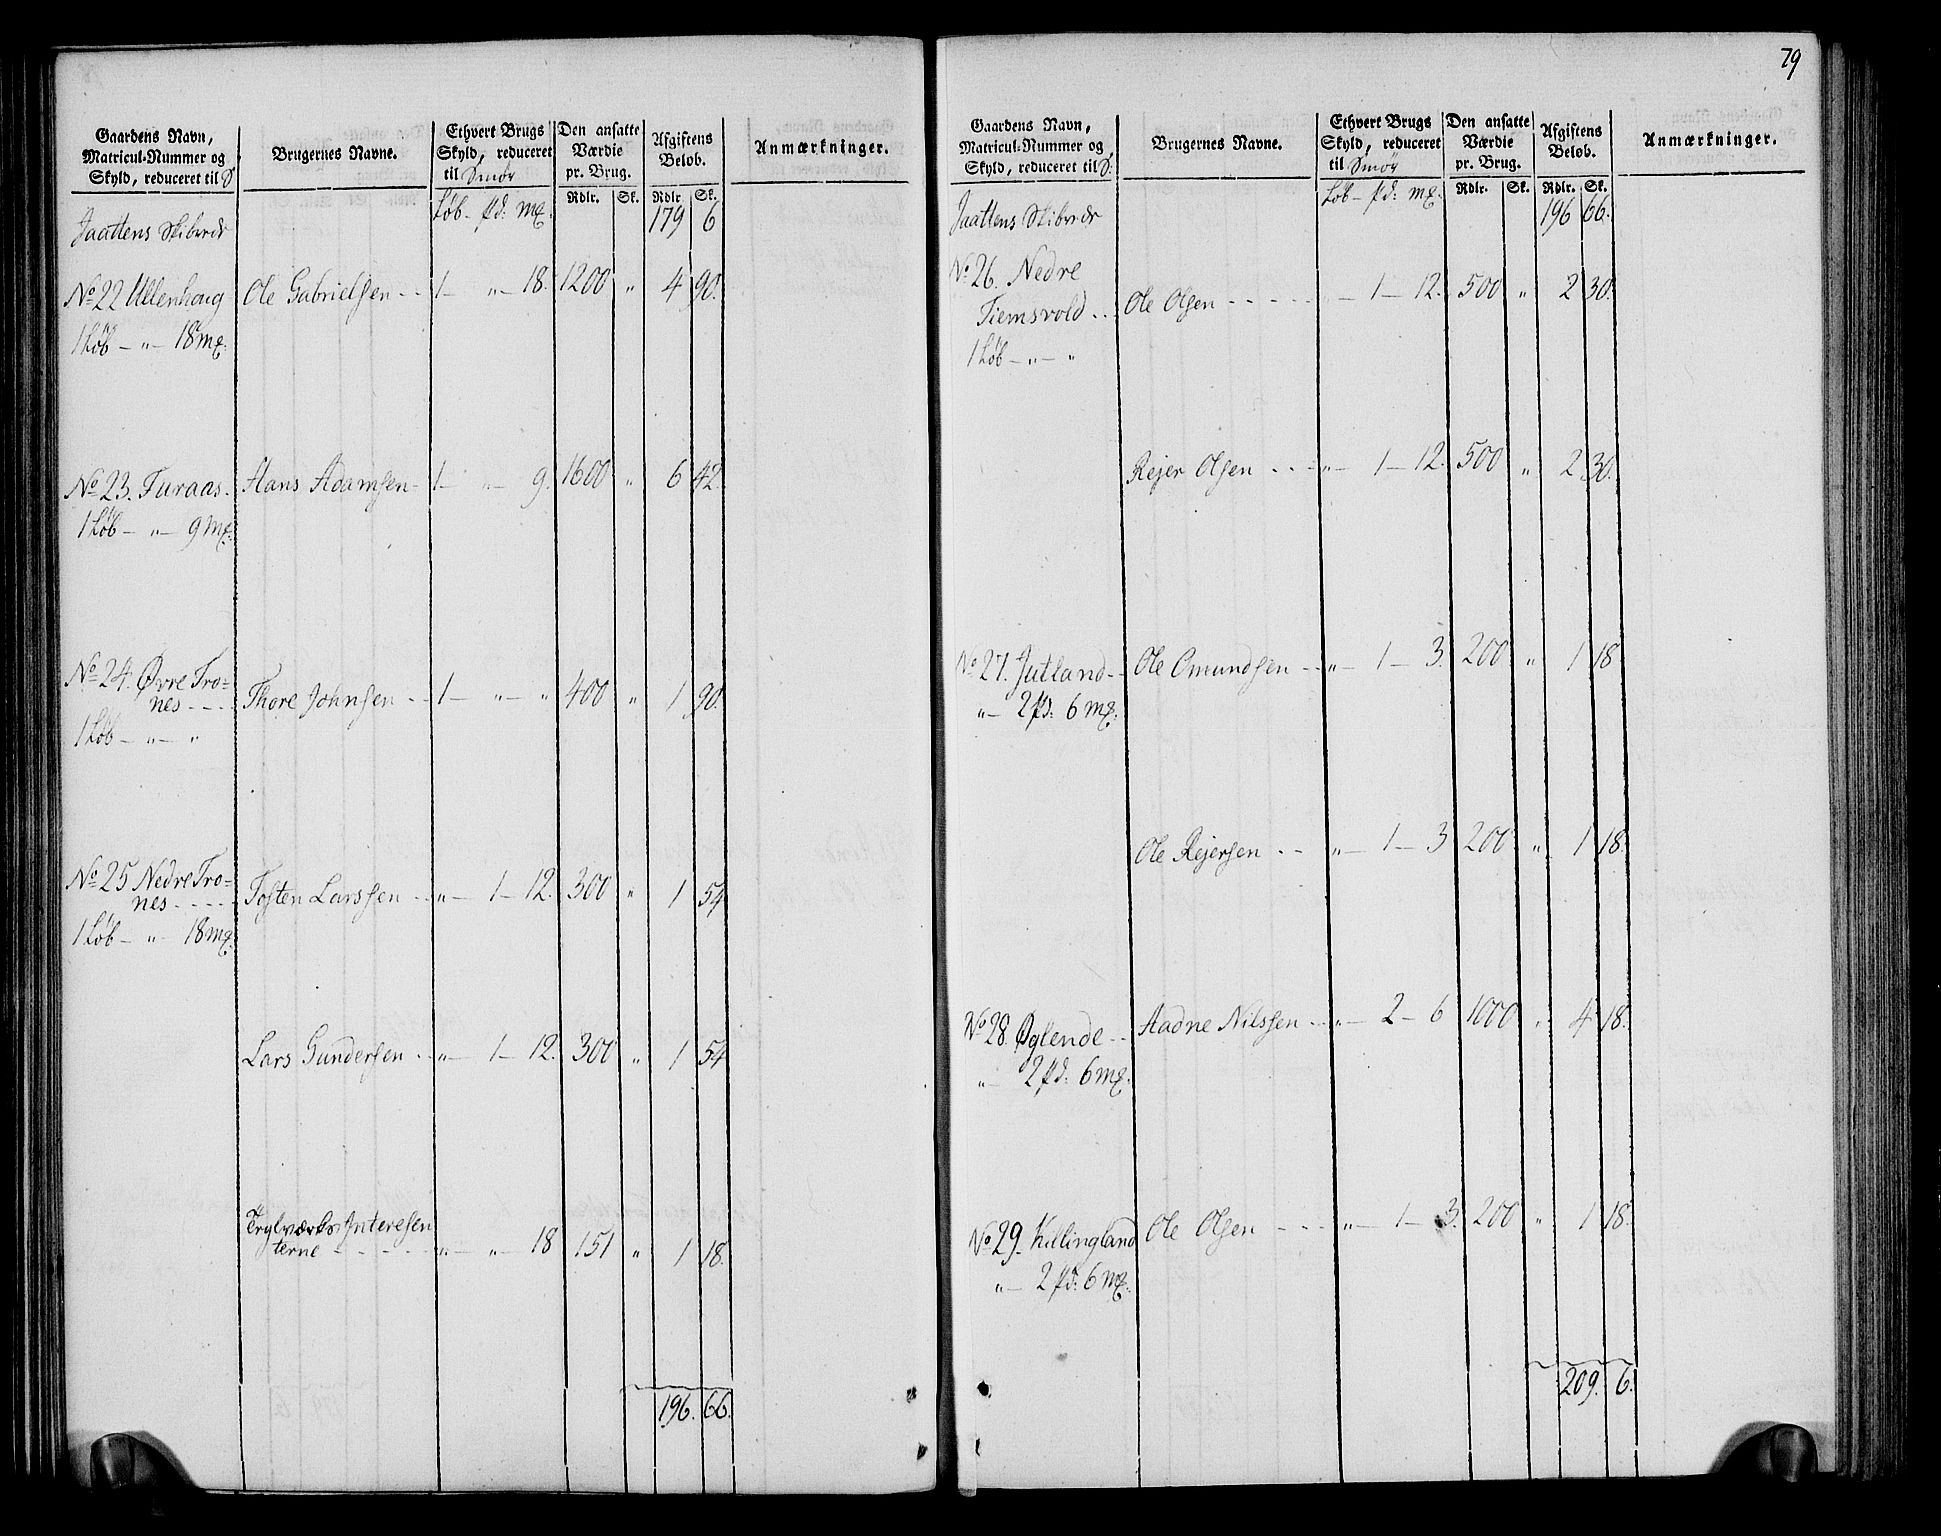 Gaardens Navn,
Matricul-Nummer og
Skyld, reduceret til S.
Brugernes Navne.
Ethvert Brugs
Skyld, reduceret
til Smör
Den ansatte
Værdie
pr. Brug.
Afgiftens
Beløb.
Anmærkninger.
Rdlr. Sk. Rdlr. Sk.
Jaattens Skibrede Löb - pd: mk: 179 6
No 22 Ullenhaug Ole Gabrielsen - - 1 - „ - 18. 1200 „ 4 90.
1 Löb - „ - 18 mk:
No 23. Furaas. Hans Adamsen - 1 - „ - 9. 1600 „ 6 42.
1 Löb - „ - 9 mk:
No 24. Øvre Tro=
nes - - - Thore Johnsen - - 1 - „ - „ 400 „ 1 90.
1 Löb - „ - „
No 25 Nedre Tro=
nes - - - - Tosten Larssen - - „ - 1 - 12. 300 „ 1 54
1 Löb - „ - 18 mk:
Lars Gundersen - - „ - 1 - 12. 300 „ 1 54
Teglværks Interesen
terne - - - - - „ - „ - 18 151 „ 1 18.
196. 66.
79
Gaardens Navn,
Matricul-Nummer og
Skyld, reduceret til S:
Brugernes Navne.
Ethvert Brugs
Skyld, reduceret
til Smör
Den ansatte
Værdie
pr. Brug.
Afgiftens
Beløb.
Anmærkninger.
Rdlr. Sk. Rdlr. Sk.
Jaattens Skibrede Löb - pd: mk: 196 66.
No 26. Nedre
Tiemsvold - - Ole Olsen - - - - - - 1 - 12. 500 „ 2 30.
1 Löb - „ - „
Rejer Olsen - - - „ - 1 - 12. 500 „ 2 30.
No 27. Jutland - - Ole Omundsen - - „ - 1 - 3. 200 „ 1 18
„ - 2 pd: 6 mk:
Ole Rejersen - - „ - 1 - 3 200 „ 1 18.
No 28. Øglende - - Aadne Nilssen - - „ - 2 - 6 1000 „ 4 18.
„ - 2 pd: 6 mk:
No 29. Killingland Ole Olsen - - - „ - 1 - 3. 200 „ 1 18.
„ - 2 pd: 6 mk:
209. 6.